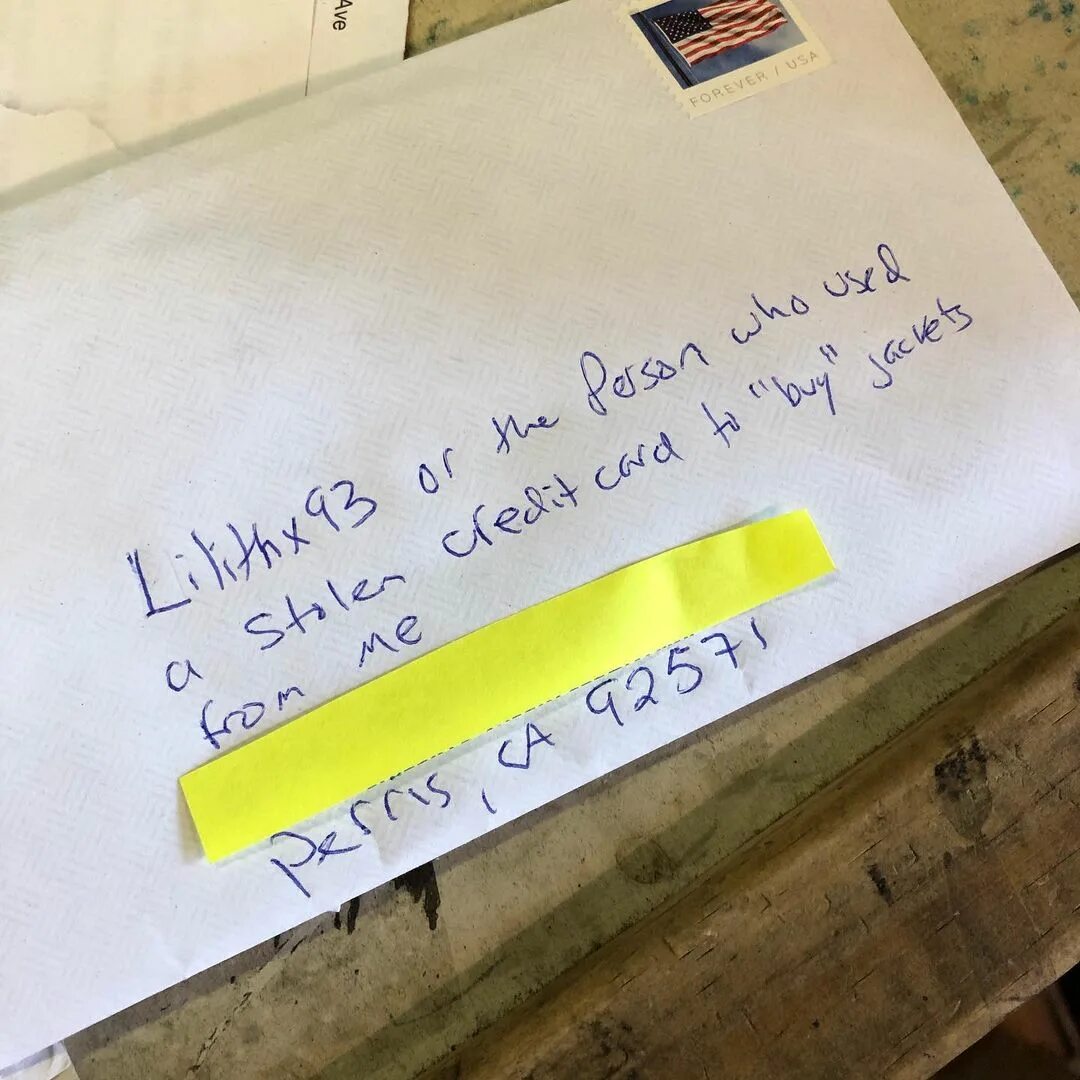 Ave
FOREVER / USA
Lilithx93 or the Person who used
a stolen credit card to "buy" jackets
from me
Perris, CA 92571